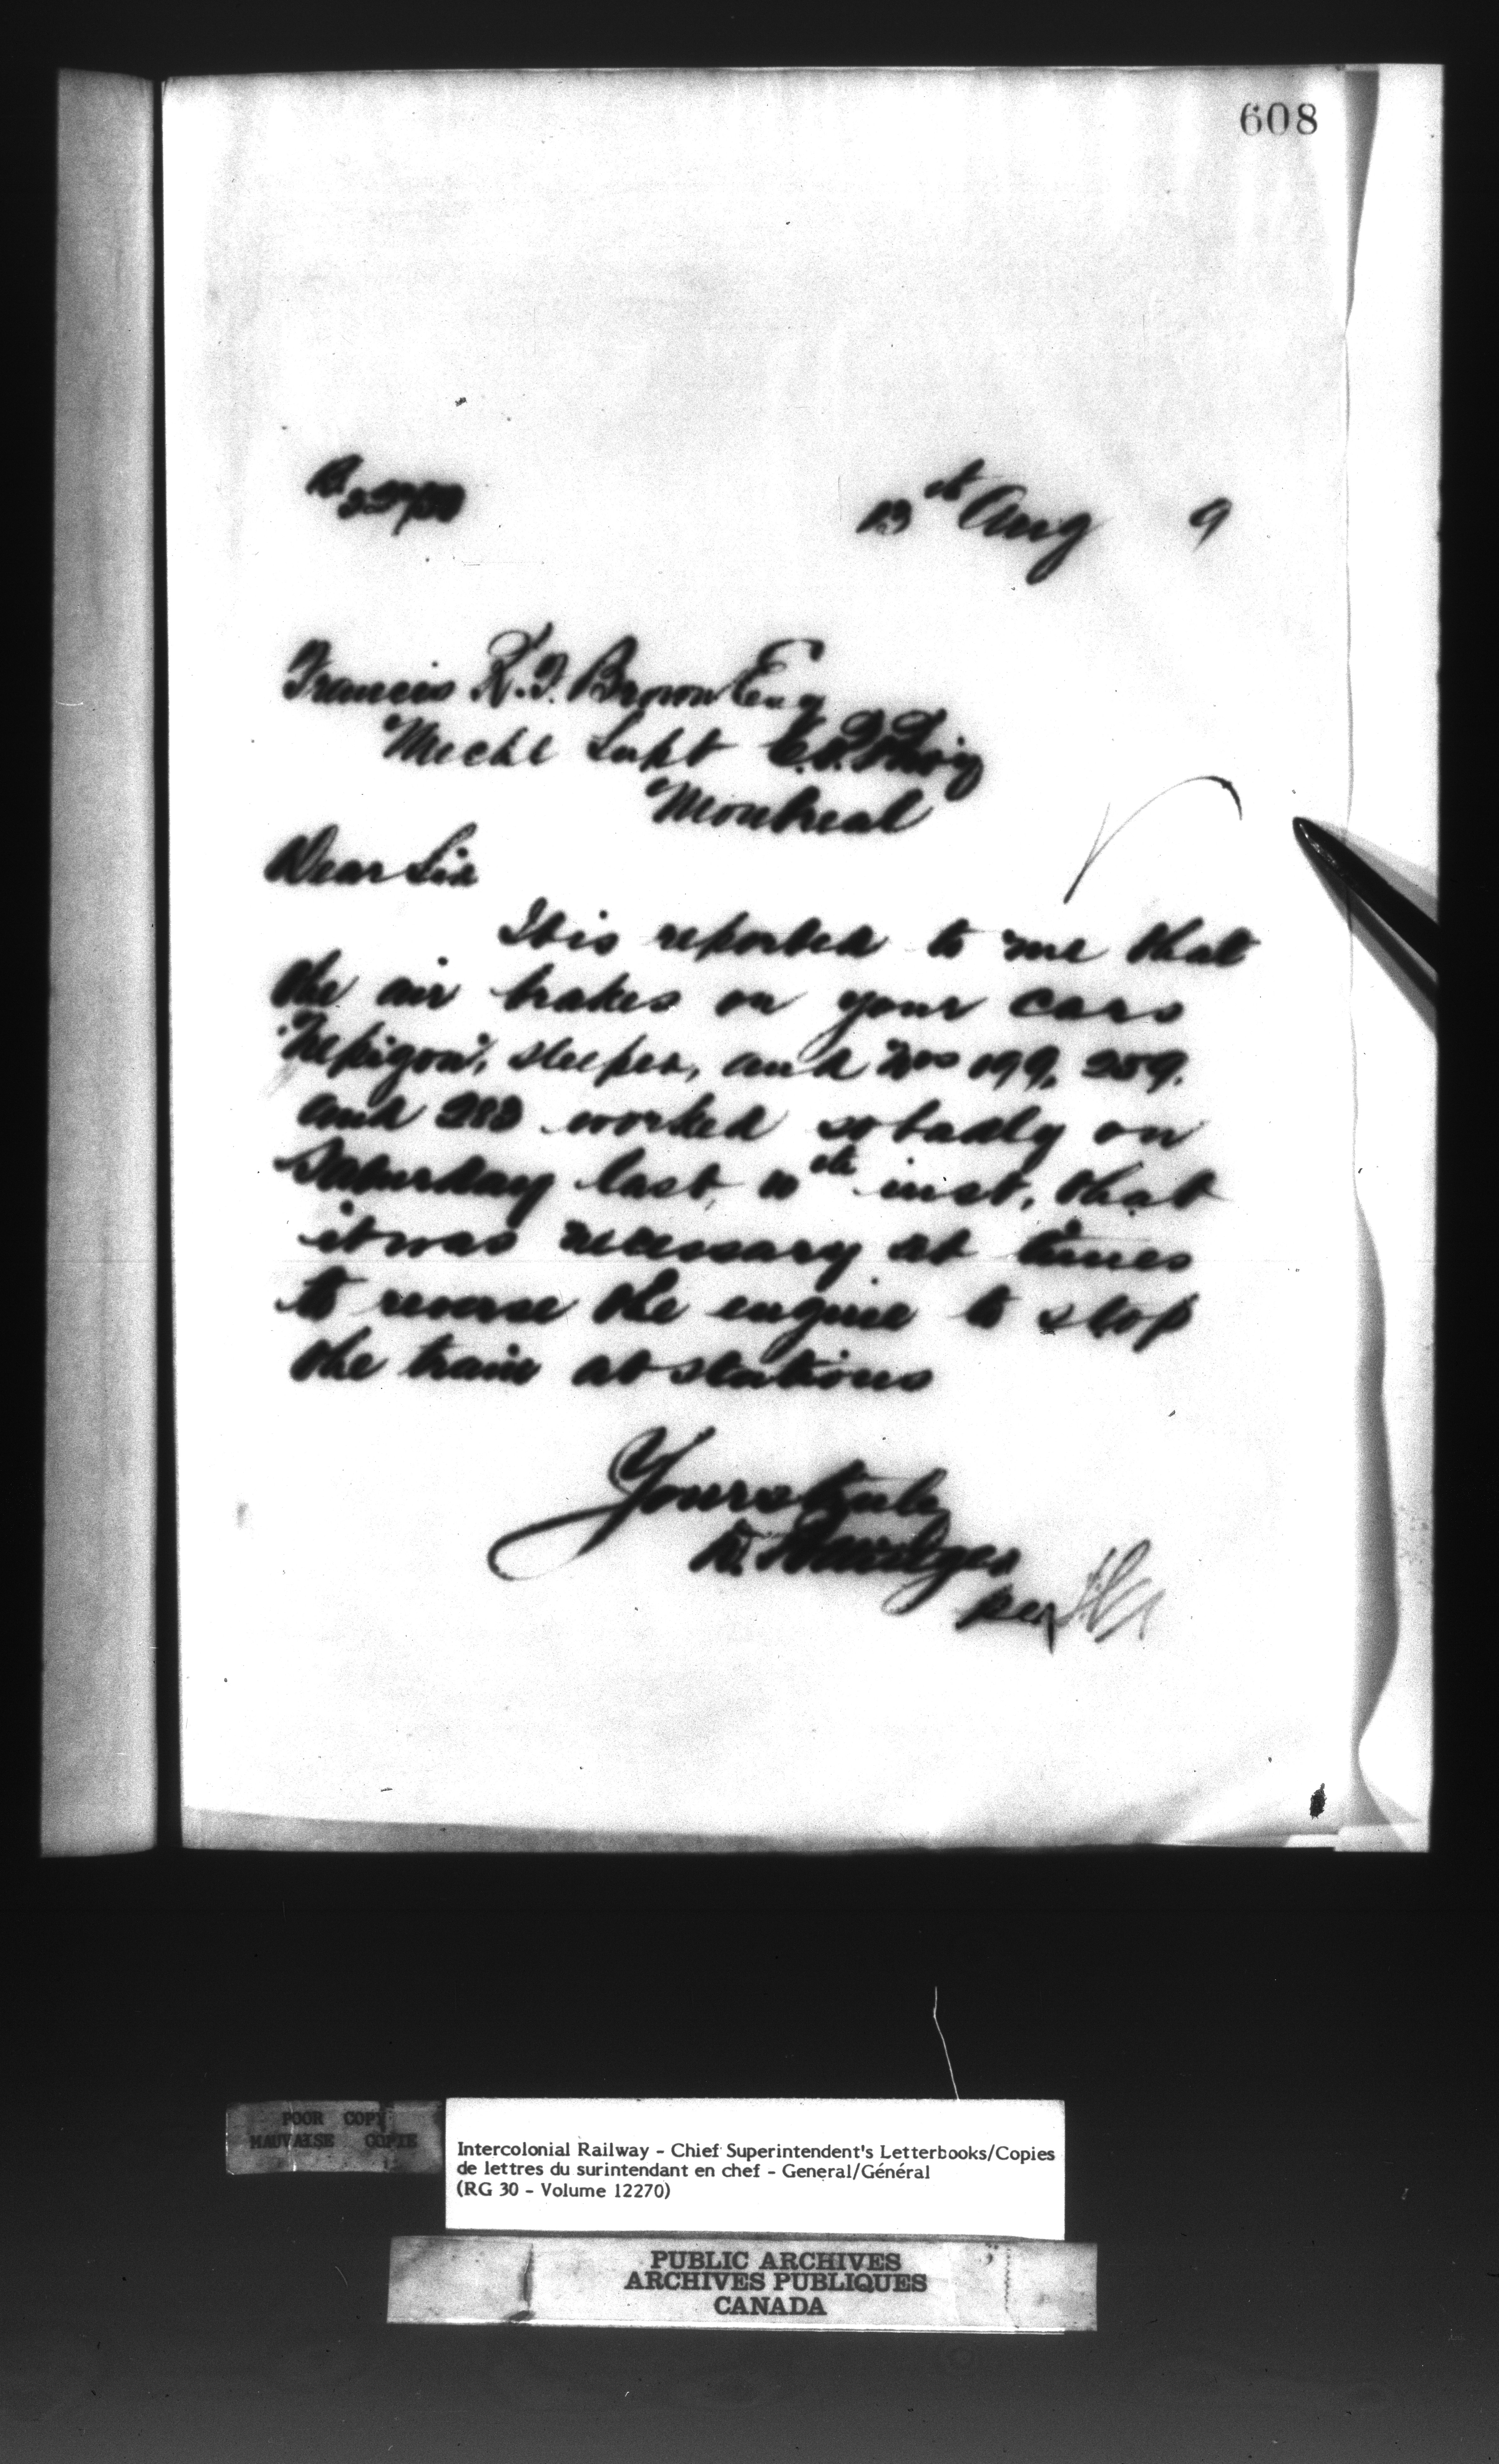 608
13th Aug 9
Francis R. F. Brown Esq
Mechl Supt
Montreal
Dear Sir
It is reported to me that
the air brakes on your cars
"Nepigon", sleeper, and Nos 199, 259,
and worked so badly on
Saturday last, 10th inst, that
it was necessary at times
to reverse the engine to stop
the train at stations
Yours truly
per
POOR COPY
MAUVAISE COPIE
Intercolonial Railway - Chief Superintendent's Letterbooks/Copies
de lettres du surintendant en chef - General/Général
(RG 30 - Volume 12270)
PUBLIC ARCHIVES
ARCHIVES PUBLIQUES
CANADA